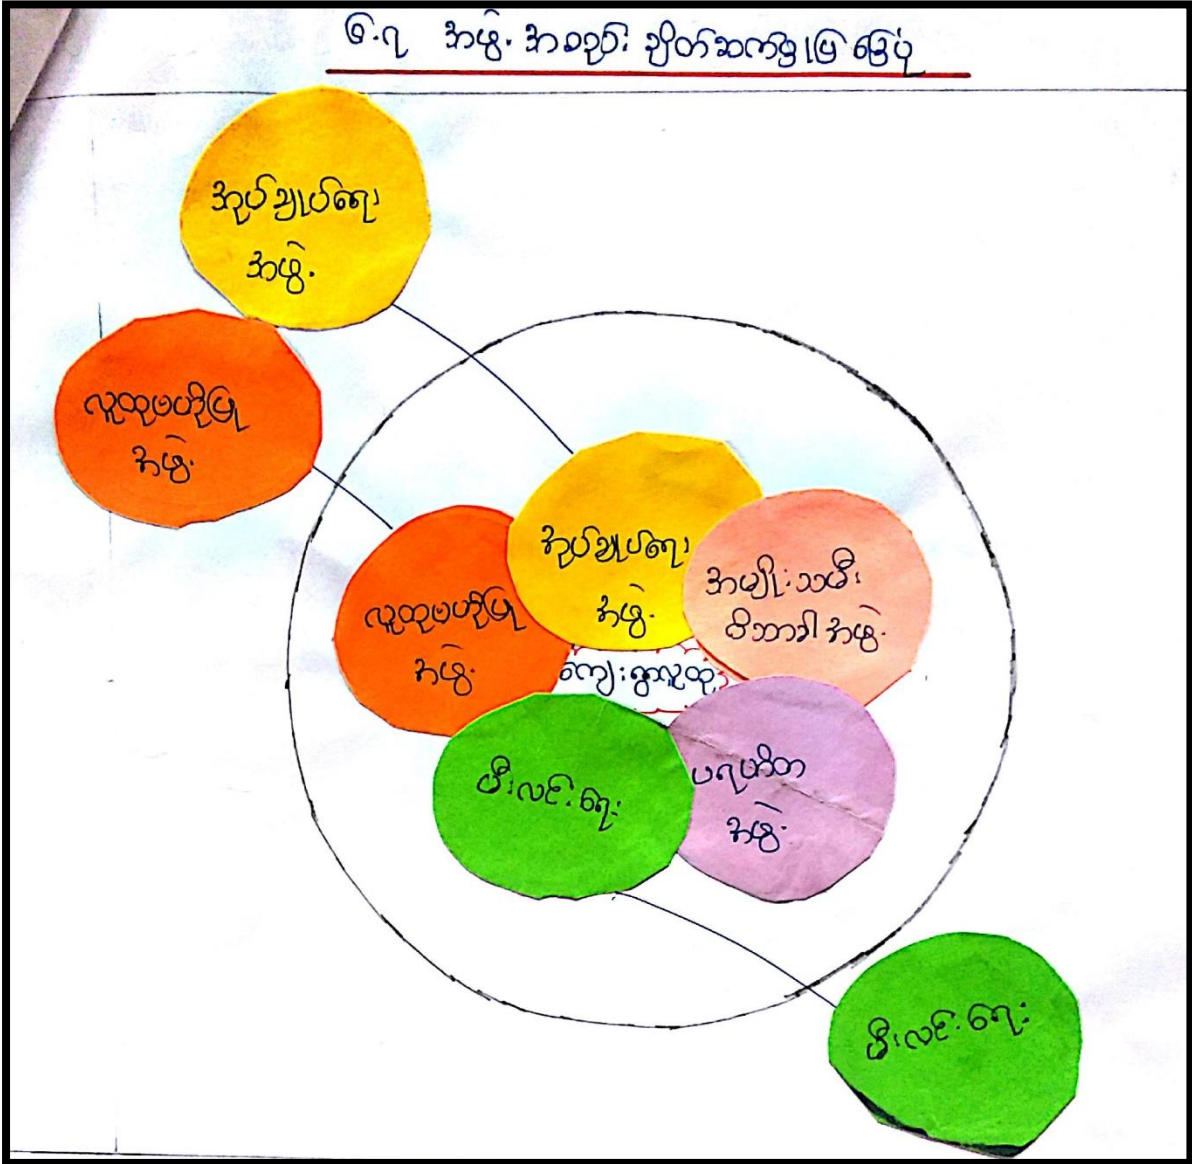 ၆.၇ အဖွဲ့ အစည်း ချိတ်ဆက်မှုပြ မြေပုံ
အုပ်ချုပ်ရေး
အဖွဲ့
လူထုဗဟိုပြု
အဖွဲ့
အုပ်ချုပ်ရေး
အဖွဲ့
အမျိုးသမီး
ဝိသာခါ အဖွဲ့
လူထုဗဟိုပြု
အဖွဲ့
ကျေးရွာလူထု
မီးလင်းရေး
ပရဟိတ
အဖွဲ့
မီးလင်းရေး